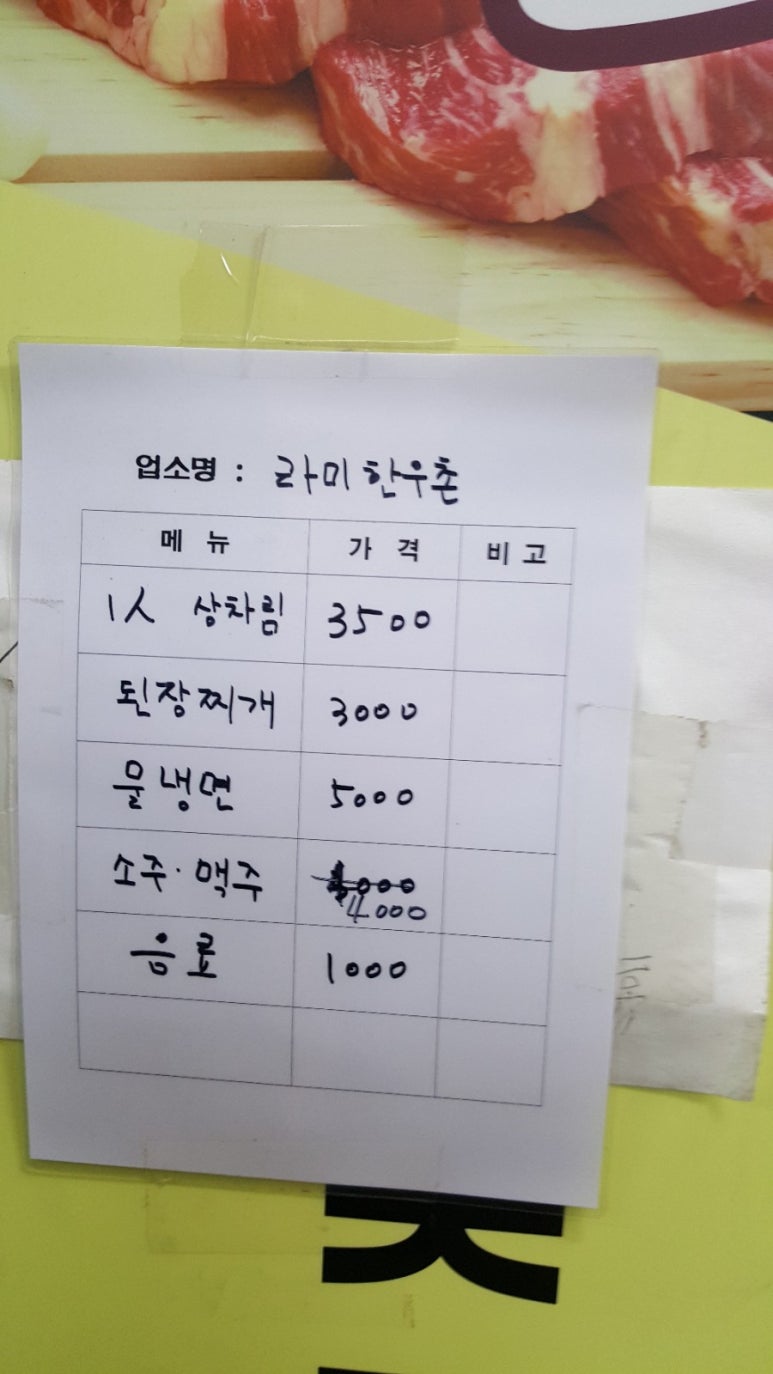 업소명 : 라미한우촌
메 뉴 가 격 비 고
1人 상차림 3500
된장찌개 3000
물냉면 5000
소주·맥주
4000
음료 1000
K